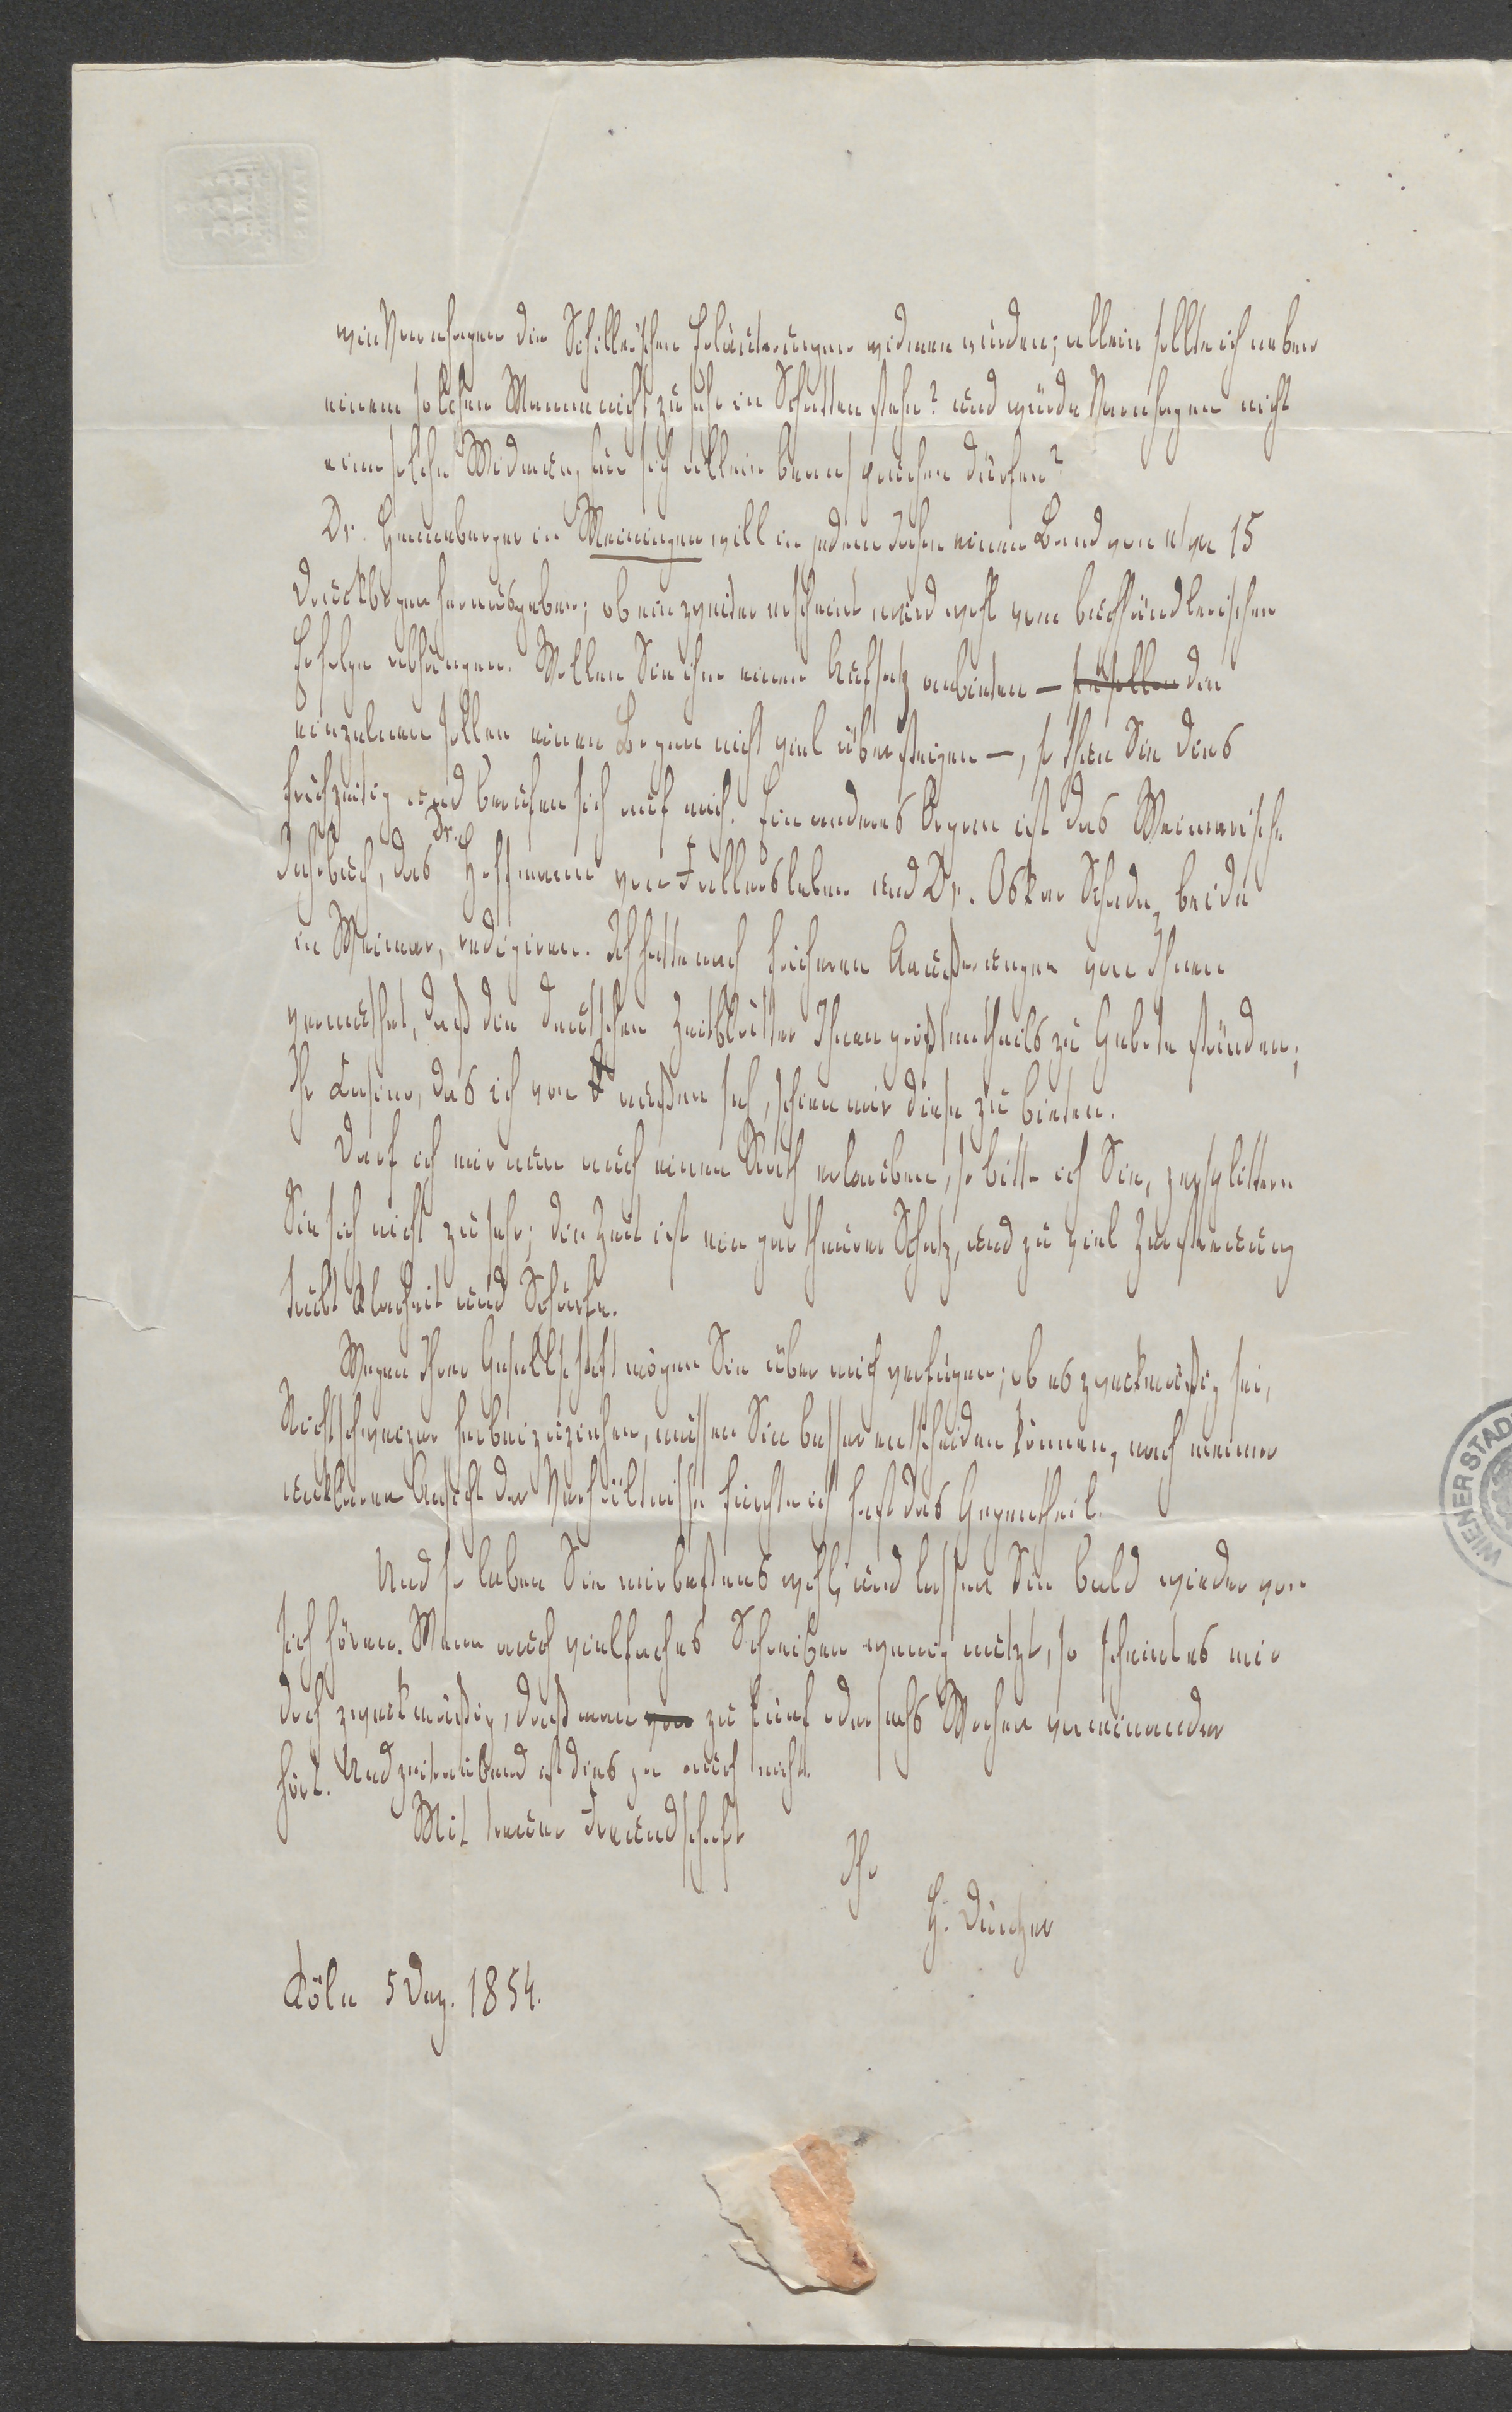 wie Varnhagen die Schillerschen Erläuterungen widmen würden; allein sollte ich neben
einem solchen Manne nicht zu sehr in Schatten stehn? und würde Varnhagen nicht
eine solche Widmung für sich allein beanspruchen dürfen?
Dr. Henneberger in Meiningen will in jedem Jahre einen Band von etwa 15
Druckbogen herausgeben; ob ein zweiter erscheint wird wohl vom buchhändlerischen
Erfolge abhängen. Wollen Sie ihm einen Aufsatz anbieten – die
einzelnen sollen einen Bogen nicht viel übersteigen –, so thun Sie dies
frühzeitig und berufen sich auf mich. Ein anderes Organ ist das Weimarische
Jahrbuch, das Dr. Hoffmann von Fallersleben und Dr. Oskar Schade, beide
in Weimar, redigiren. Ich hatte nach früheren Aeußerungen von Ihnen
vermuthet, daß die deutschen Zeitblätter Ihnen größtentheils zu Gebote stünden;
Ihr Kasino, das ich von außen sah, schien mir diese zu bieten.
Darf ich mir nun auch einen Rath erlauben, so bitte ich Sie, zersplittern
Sie sich nicht zu sehr; die Zeit ist ein gar theurer Schatz, und zu viel Zerstreuung
trübt Klarheit und Schärfe.
Wegen Ihrer Gesellschaft mögen Sie über mich verfügen; ob es zweckmäßig sei,
Nichtschweizer herbeizuziehen, müssen Sie besser entscheiden können, nach meiner
unklaren Ansicht der Verhältnisse fürchte ich fast das Gegentheil.
Und so leben Sie mir bestens wohl, und lassen Sie bald wieder von
sich hören. Wenn auch vielfaches Schreiben wenig nutzt, so scheint es mir
doch zweckmäßig, daß man von zu fünf oder sechs Wochen voneinander
hört. Und zeitraubend ist dies ja auch nicht.
Mit treuer Freundschaft
Ihr
H. Düntzer
Köln 5 Dez. 1854.
WIENER STAD